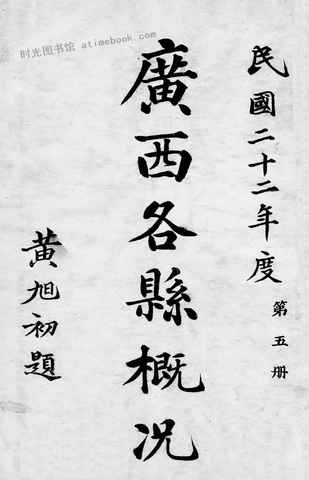 时光图书馆 atimebook.com
民國二十二年度 第五册
廣西各縣概况
黃旭初題